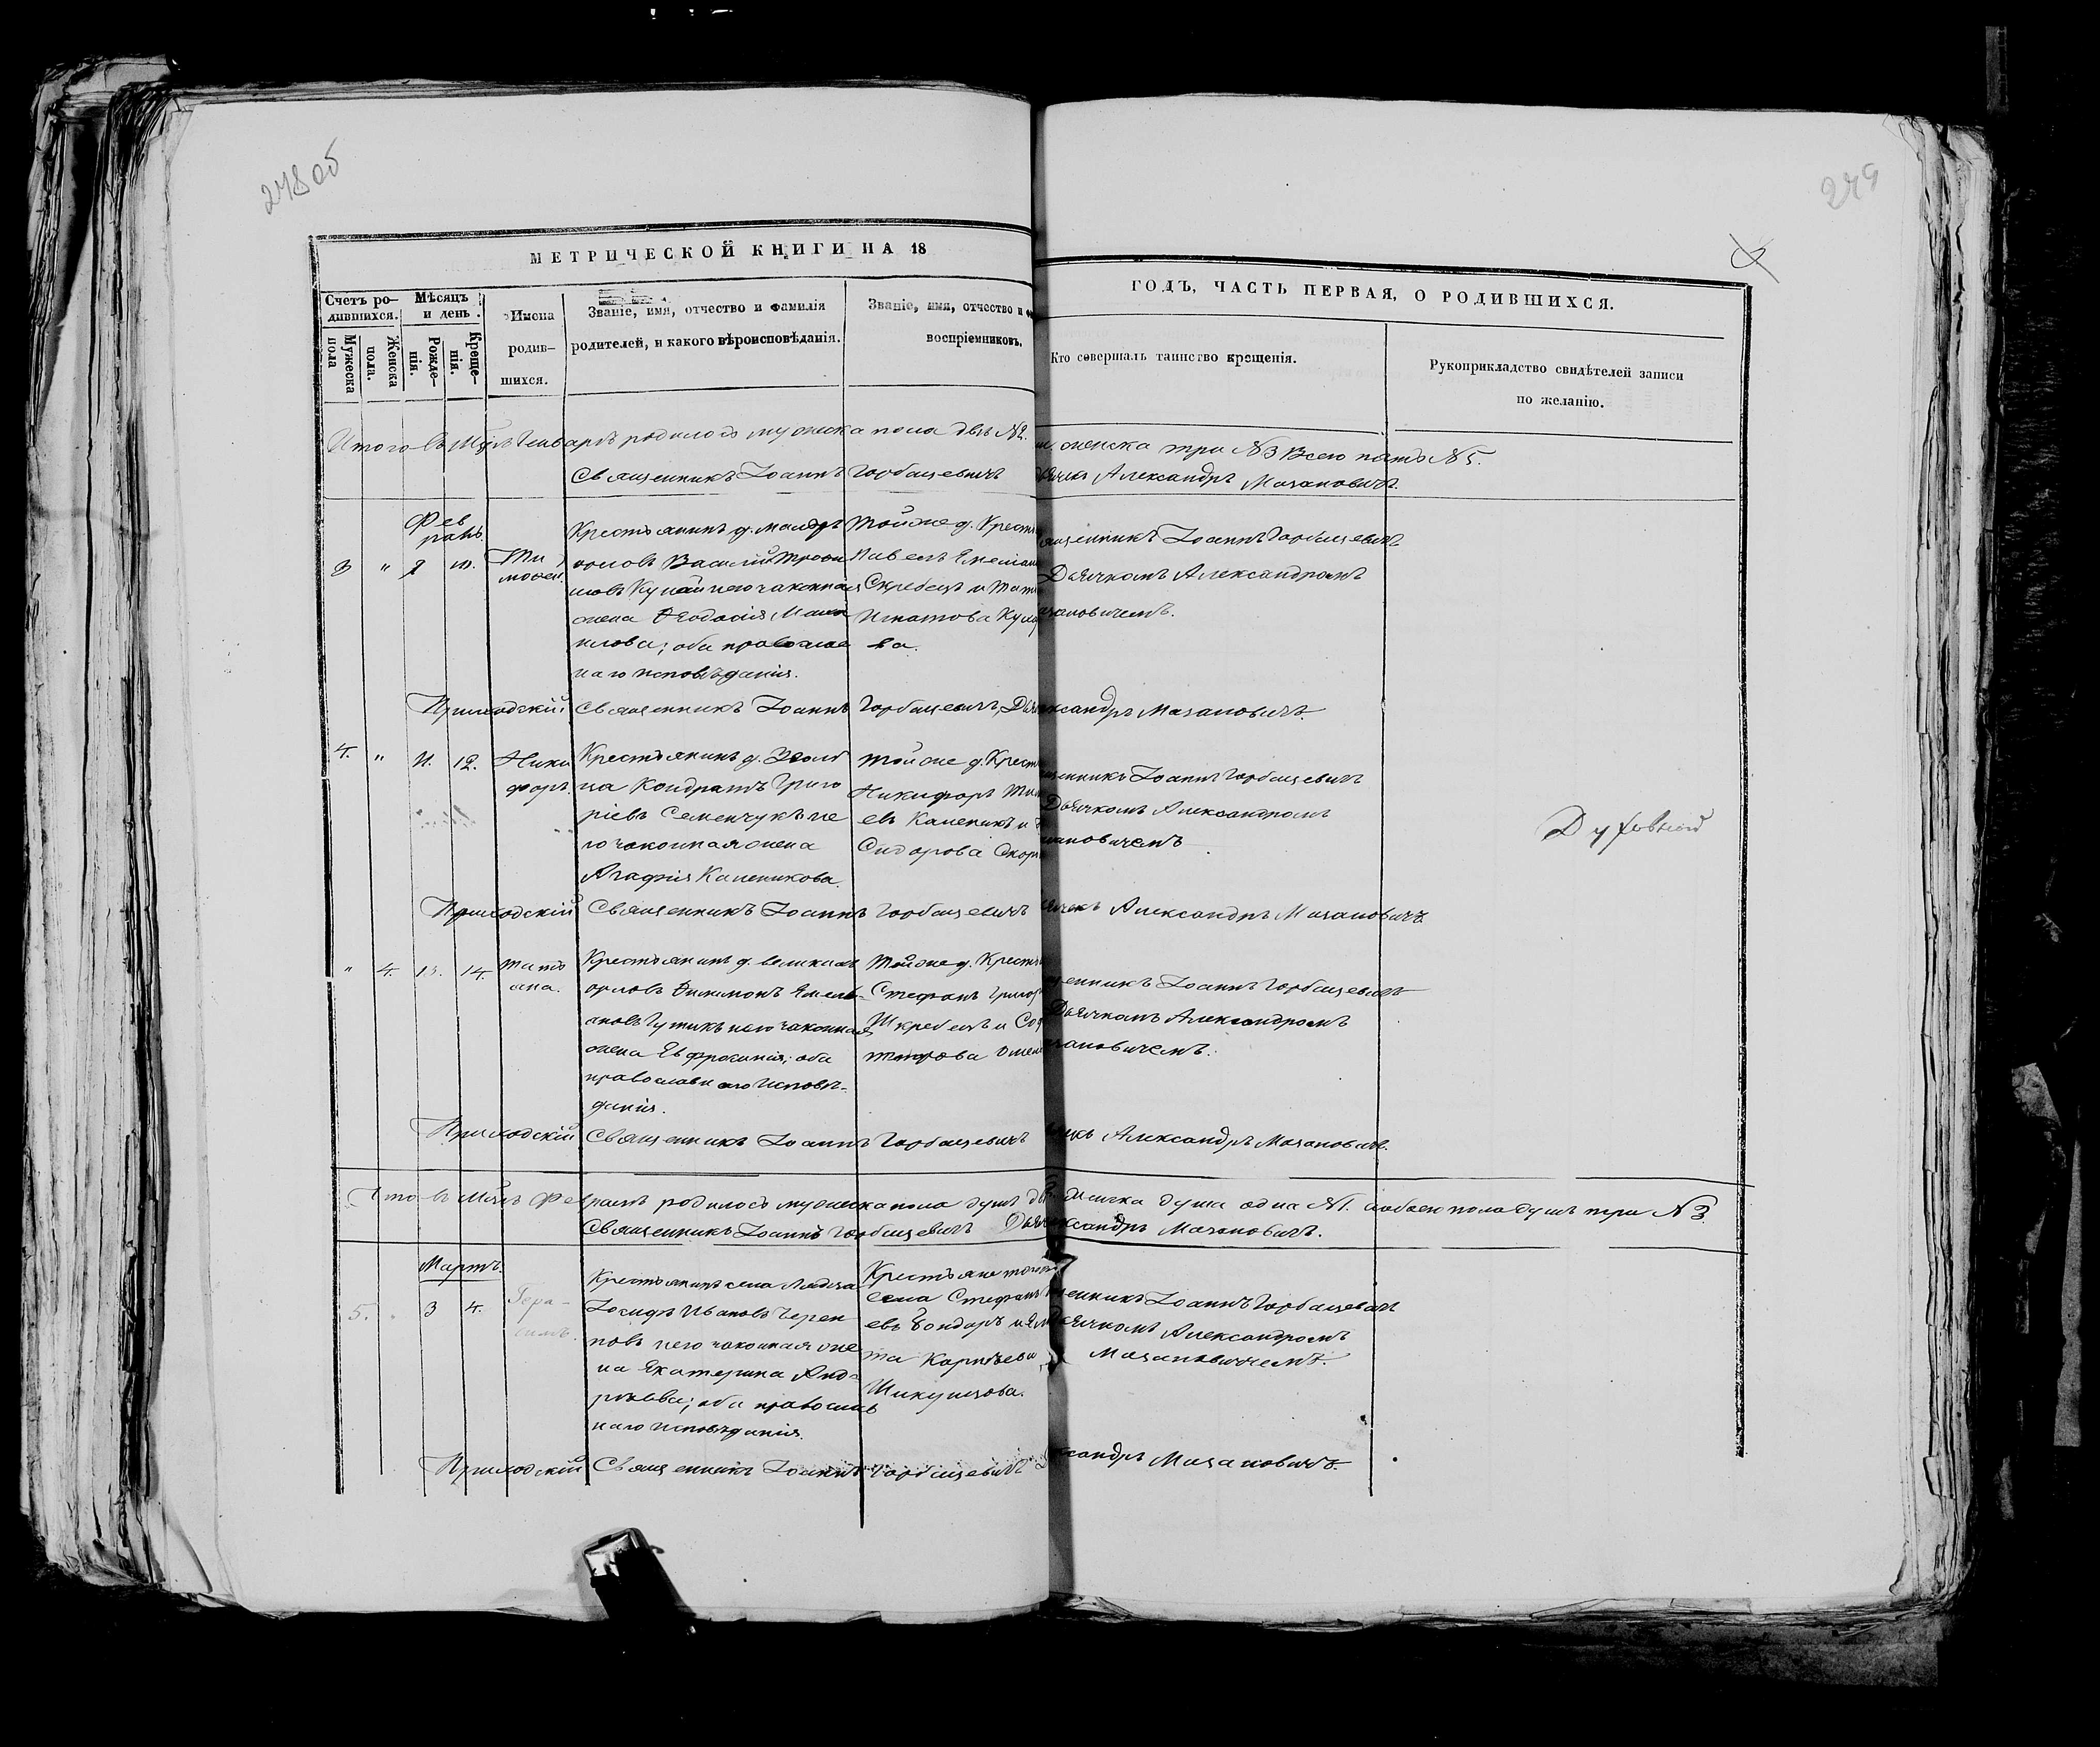 278 об
279
МЕТРИЧЕСКОЙ КНИГИ НА 18
ГОДЪ, ЧАСТЬ ПЕРВАЯ, О РОДИВШИХСЯ.
Счетъ ро-
дившихся.
Мужеска
пола
Женска
пола.
Мѣсяцъ
и день.
Рожде-
нія.
Креще-
нія.
Имена
родив-
шихся.
Званіе, имя, отчество и фамилія
родителей, и какого вѣроисповѣданія.
Званіе, имя, отчество и
воспріемниковъ.
Кто совершалъ таинство крещенія.
Рукоприкладство свидѣтелей записи
по желанію.
Итого въ Мцѣ Генварѣ родилось мужеска пола два №2. и женска три №3 Всего пять №5.
Священникъ Іоаннъ Горбацевичъ Александръ Мазановичъ.
Фев
раль.
3 " 10.
Ти
мофей.
Крестьянинъ д. Малых
орловъ Василій Трофи
мовъ и его законная
жена Ѳеодосія
оба православ
наго исповѣданія.
Тойже д. Крест
Павелъ Емельян
и Тат
Игнатова
ва.
Священникъ Іоаннъ Горбацевичъ
Дьячкомъ Александромъ
Мазановичемъ.
Приходскій Священникъ Іоаннъ Горбацевичъ, Александръ Мазановичъ.
4. " 11. 12.
Ники
форъ.
Крестьянинъ д.
на Кондратъ Григо
ріевъ Семенчукъ и е
го законная жена
Агафія Каленикова.
Тойже д. Крест
Никифоръ Тим
евъ Каленикъ и
Сидорова
Священникъ Іоаннъ Горбацевичъ
Дьячкомъ Александромъ
Мазановичемъ
Духовной
Приходскій Священникъ Іоаннъ Горбацевичъ Дьячекъ Александръ Мазановичъ.
" 4. 13. 14.
Тать
яна.
Крестьянинъ д. Великихъ
орловъ Филимонъ Емель-
яновъ Гутикъ и его законная
жена Евфросинія; оба
православнаго исповѣ-
данія.
Тойже д. Крест
Стефанъ Григор
Шкребецъ и Соф
Священникъ Іоаннъ Горбацевичъ
Дьячкомъ Александромъ
Мазановичемъ.
Приходскій Священникъ Іоаннъ Горбацевичъ Александръ Мазановичъ.
Итого въ Мцѣ Февралѣ родилось мужеска пола душъ женска душа одна №1. обоего пола душъ три №3.
Священникъ Іоаннъ Горбацевичъ Александръ Мазановичъ.
Мартъ.
5. 3 4.
Гера-
симъ.
Крестьянинъ села
Іосифъ Ивановъ Черен
ковъ и его законная же
на Екатерина Анд-
реева; оба православ
наго исповѣданія.
Крестьяне тогоже
села Стефанъ
евъ Бондаръ и
та Карпѣева
Шикунцова.
Священникъ Іоаннъ Горбацевичъ
Дьячкомъ Александромъ
Мазановичемъ.
Приходскій Священникъ Іоаннъ Горбацевичъ Александръ Мазановичъ.